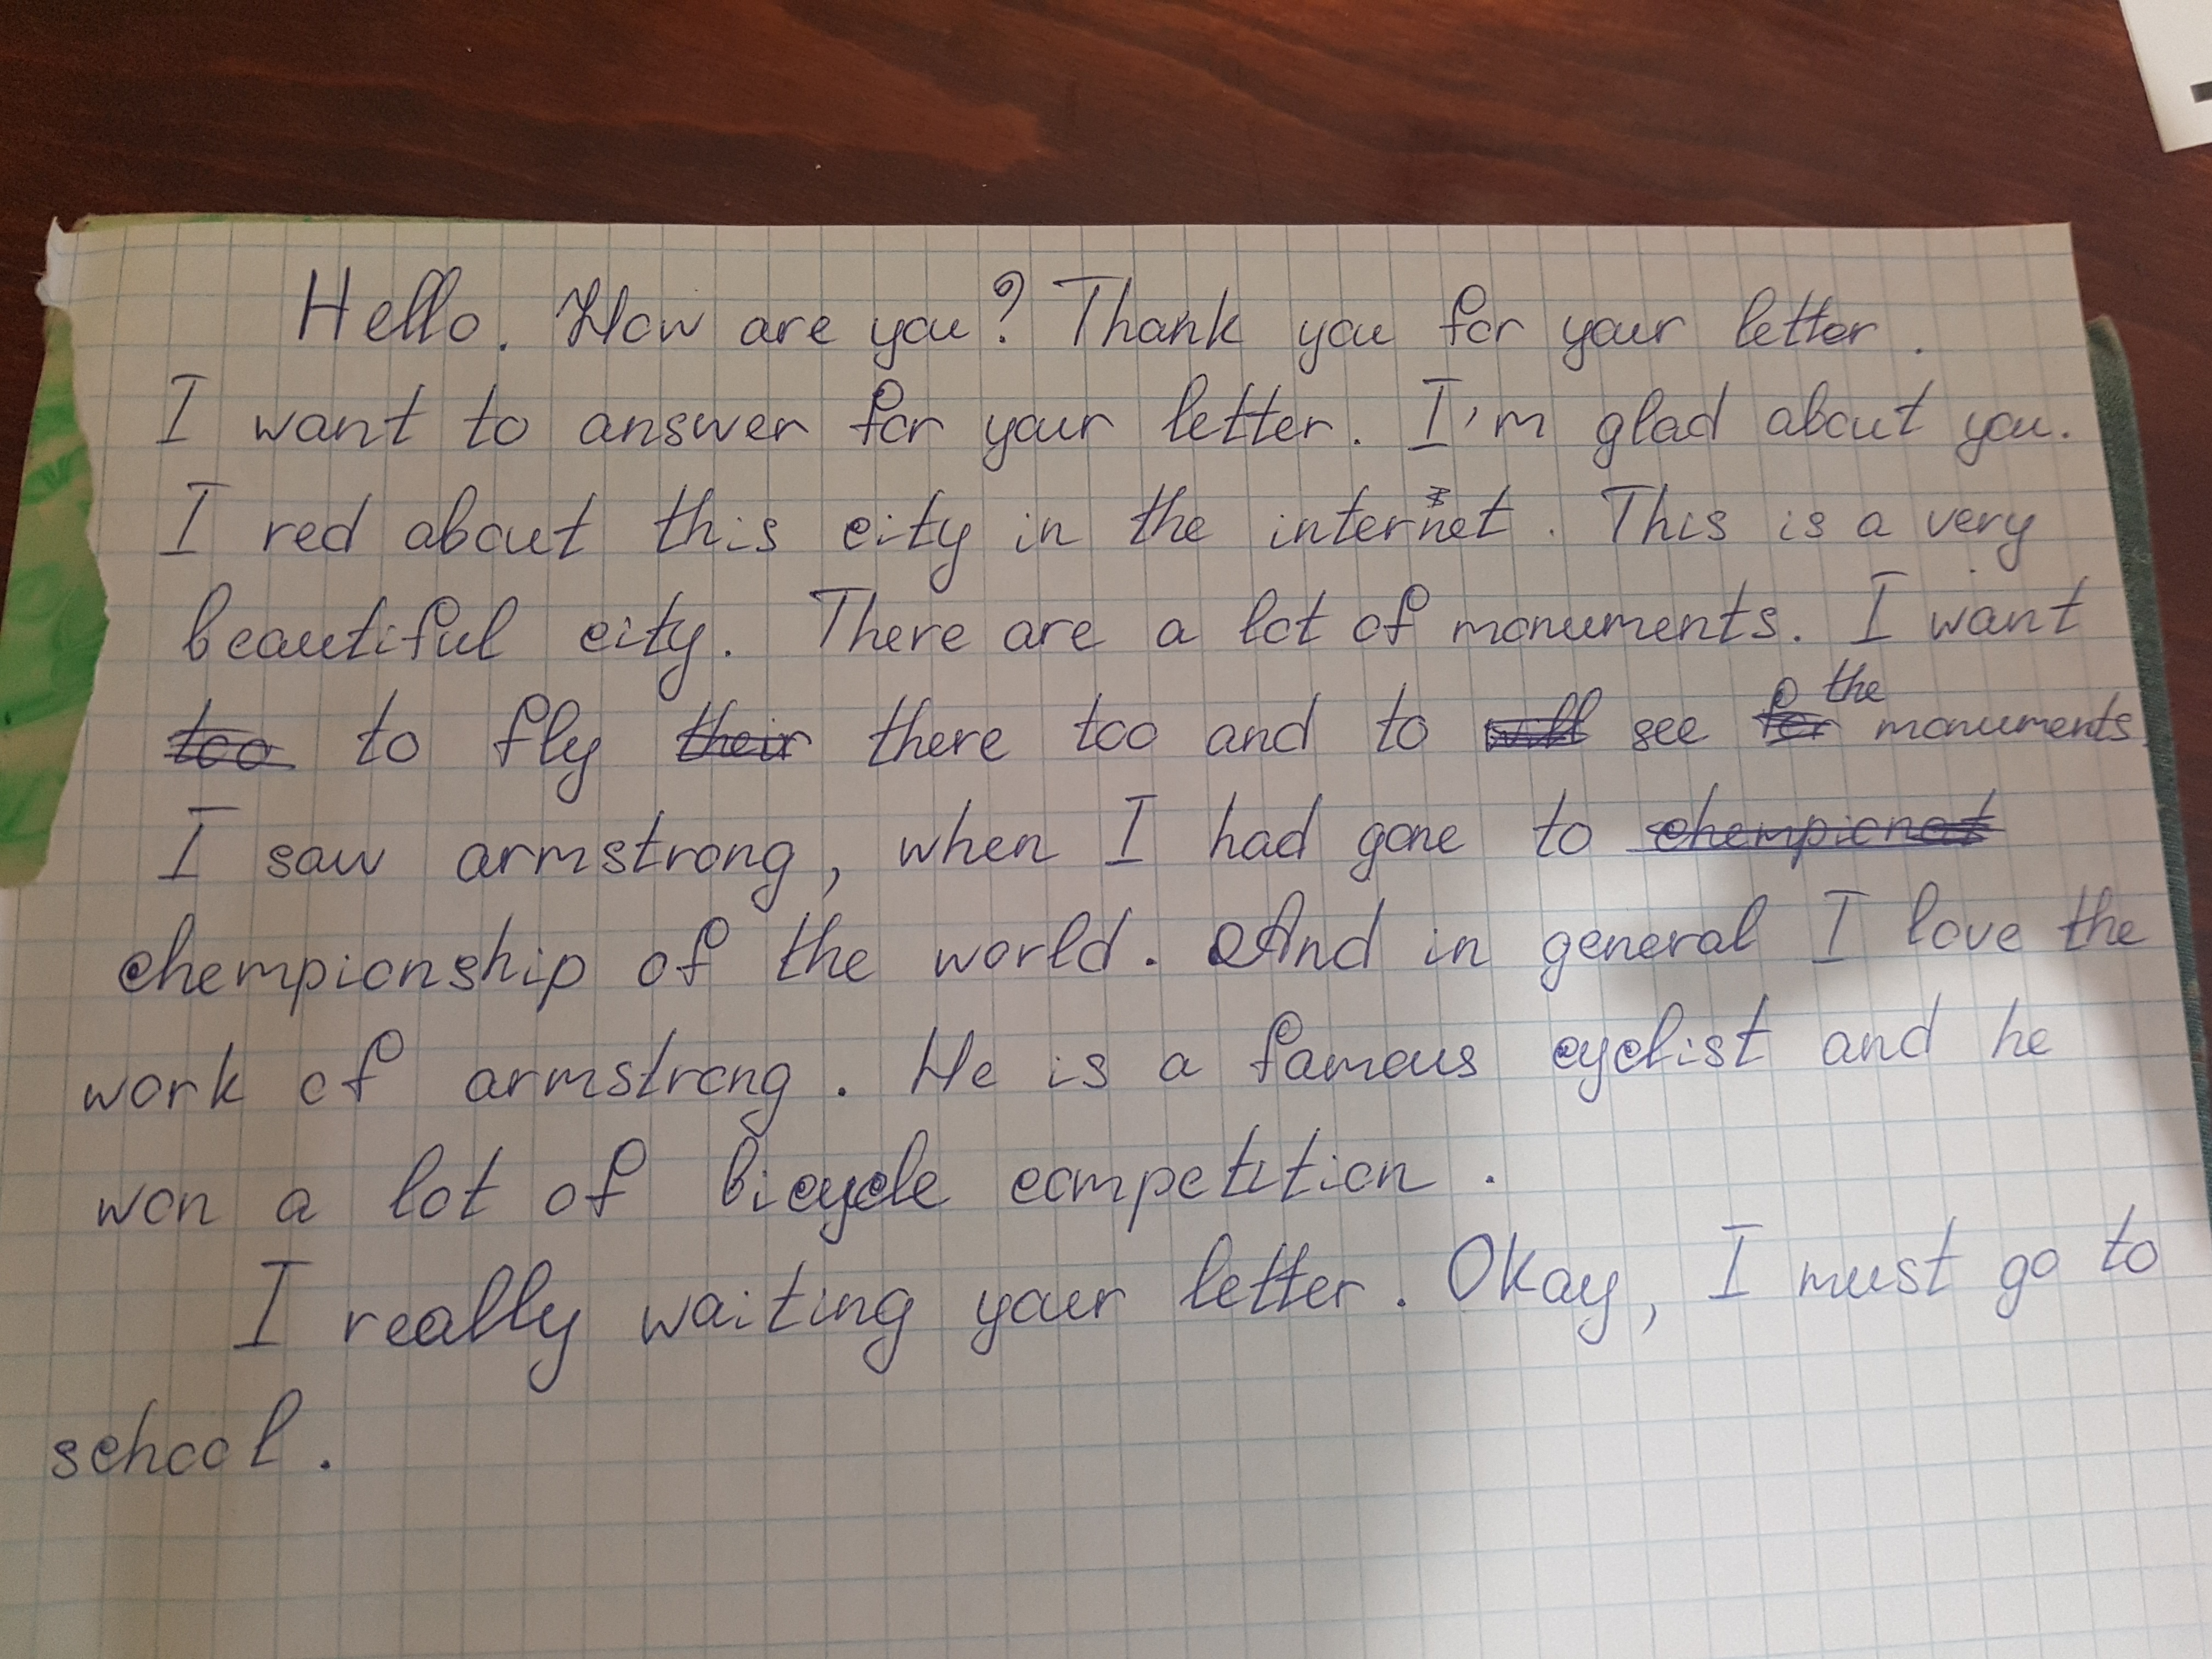 Hello. How are you? Thank you for your letter.
I want to answer for your letter. I'm glad about you.
I red about this city in the internet. This is a very
beautiful city. There are a lot of monuments. I want
too to fly their there too and to will see for the monuments.
I saw armstrong, when I had gone to chempionat
chempionship of the world. And in general I love the
work of armstrong. He is a famous cyclist and he
won a lot of bicycle competition.
I really waiting your letter. Okay, I must go to
school.